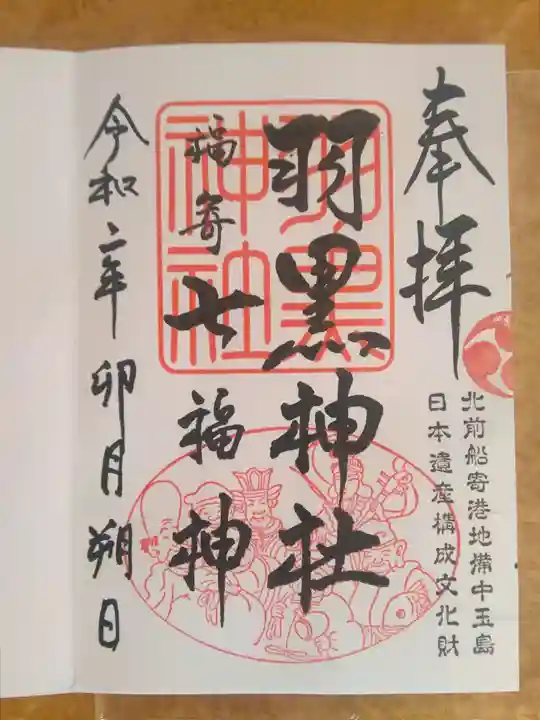 奉拝
北前船寄港地備中玉島
日本遺産構成文化財
羽黒神社
羽黒神社
福寄七福神
令和二年卯月朔日